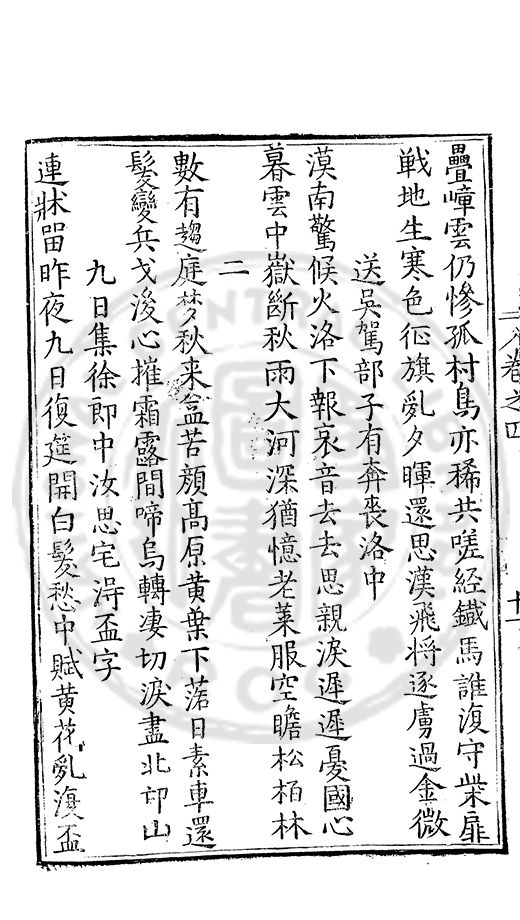 疊嶂雲仍慘孤村鳥亦稀共嗟経鐡馬誰復守柴扉
戦地生寒色征旗亂夕暉還思漢飛将逐虜過金微
送吳駕部子有奔喪洛中
漠南驚候火洛下報哀音去去思親淚遲遲憂國心
暮雲中嶽斷秋雨大河深猶憶老萊服空瞻松栢林
二
數有趨庭梦秋来益苦顔髙原黄葉下落日素車還
髪變兵戈後心摧霜露間啼烏轉凄切淚盡北邙山
九日集徐郎中汝思宅淂盃字
連牀留昨夜九日復筵開白髪愁中賦黄花亂後盃
卷之四
十一